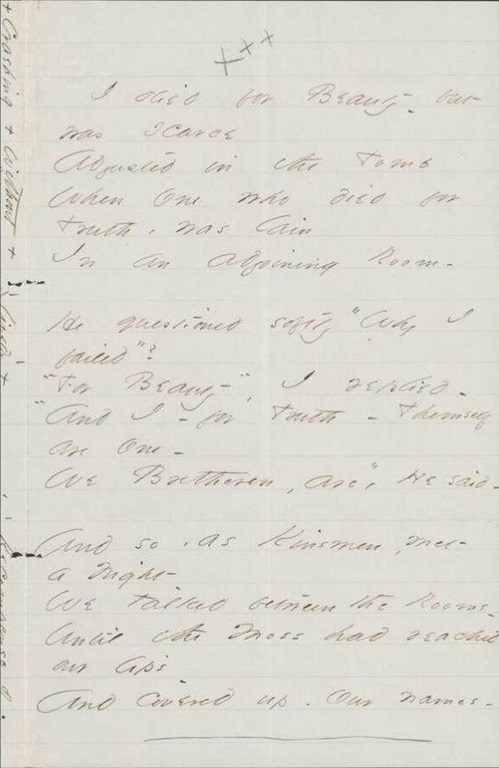 + + +
I died for Beauty - but
was Scarce
Adjusted in the Tomb
When One who died for
Truth, was lain
In an adjoining Room -
He questioned softly "Why I
failed"?
"For Beauty -", I replied -
"And I - for Truth - Themself
are One -
We Bretheren, are", He said -
And so, as Kinsmen, met
a Night -
We talked between the Rooms
Until the Moss had reached
our lips
And covered up - Our names -
+ Crashing + Without +